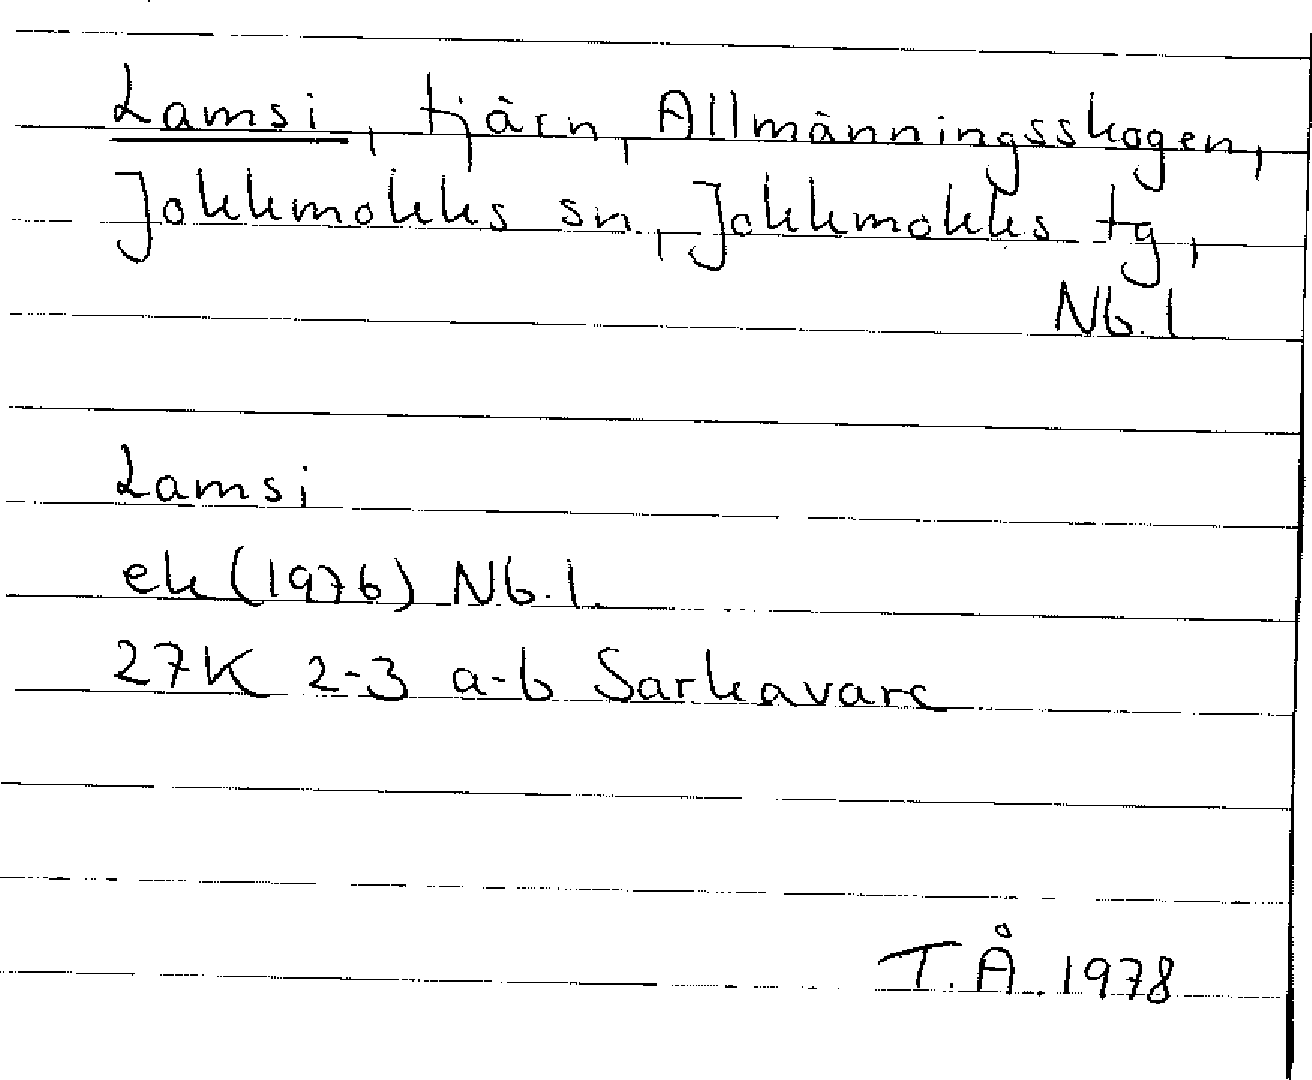 Lamsi, tjärn, Allmänningsskogen,
Jokkmokks sn, Jokkmokks tg,
Nb. l
Lamsi
ek (1976) Nb. l.
27K 2-3 a-b Sarkavare
T.Å. 1978